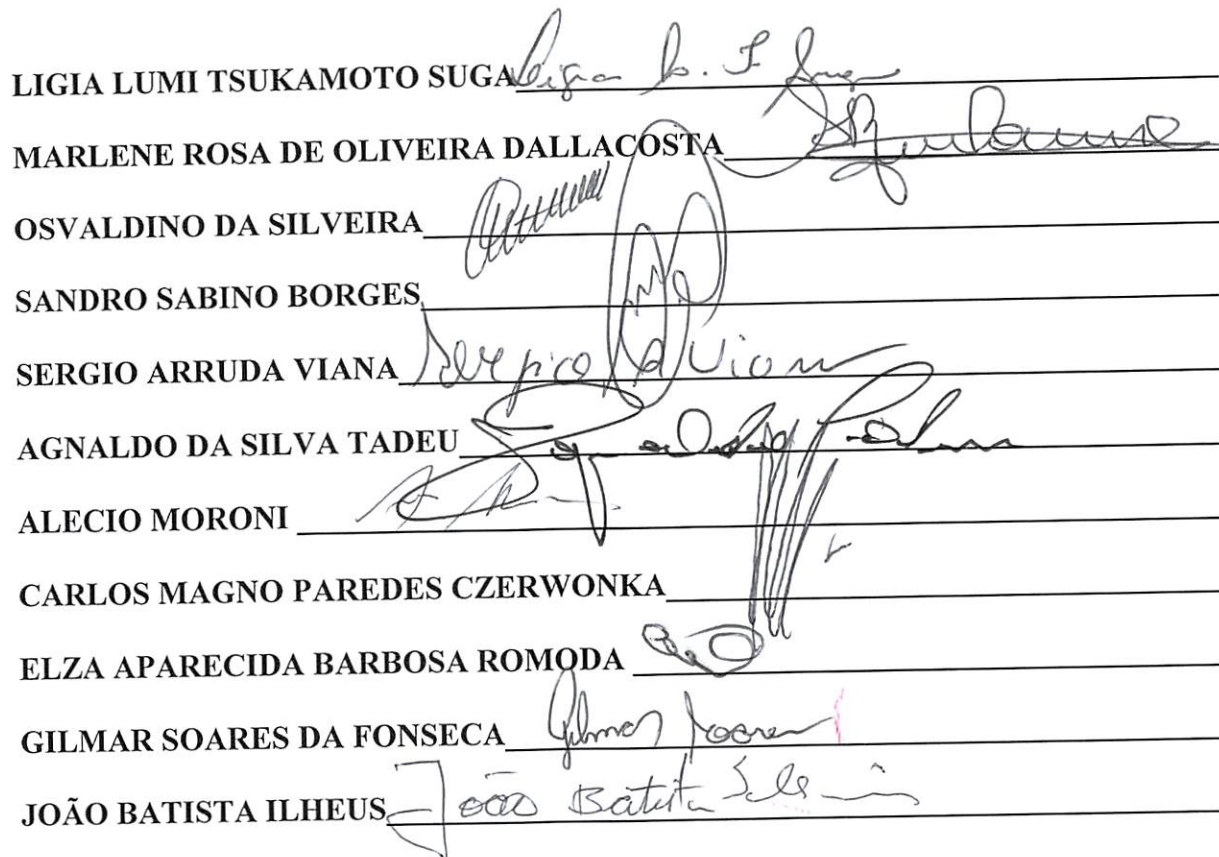 LIGIA LUMI TSUKAMOTO SUGA Ligia L. T. Suga
MARLENE ROSA DE OLIVEIRA DALLACOSTA
OSVALDINO DA SILVEIRA
SANDRO SABINO BORGES
SERGIO ARRUDA VIANA Sergio A Viana
AGNALDO DA SILVA TADEU
ALECIO MORONI
CARLOS MAGNO PAREDES CZERWONKA
ELZA APARECIDA BARBOSA ROMODA
GILMAR SOARES DA FONSECA Gilmar Soares
JOÃO BATISTA ILHEUS João Batista